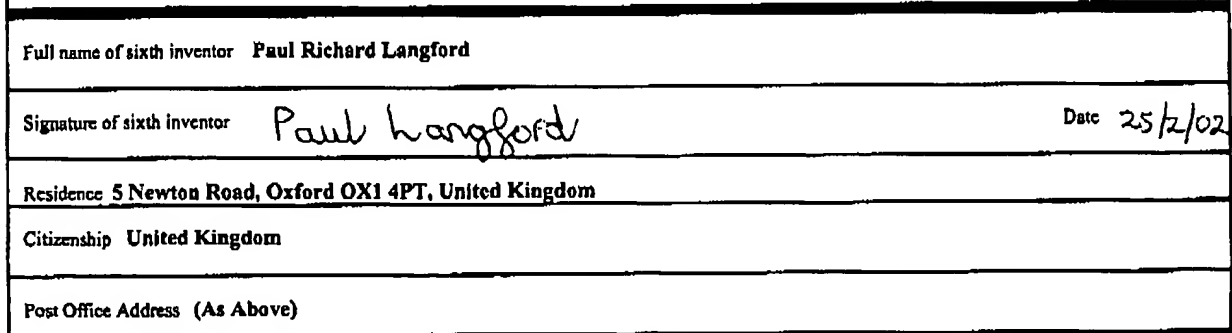 Full name of sixth inventor Paul Richard Langford
Signature of sixth inventor Paul Langford Date 25/2/02
Residence 5 Newton Road, Oxford OX1 4PT, United Kingdom
Citizenship United Kingdom
Post Office Address (As Above)